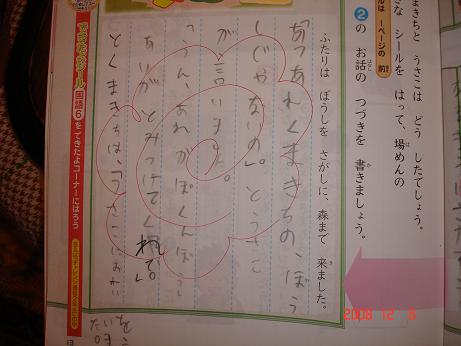 まきちと うさこは どう したでしょう。
きな シールを はって、場めんの
ールは 1ページの 前
2の お話の つづきを 書きましょう。
ふたりは ぼうしを さがしに、森まで 来ました。
「あっあれくまきちの、ぼう
しじゃなあの。」とうさこ
が言いました。
「うん、あれがぼくんぼうし
ありがとみつけてくれて。」
とくまきちは、「うさこにおれい
をい
いまし
た。
できたよシール 国語6を できたよコーナーに はろう
2008 12